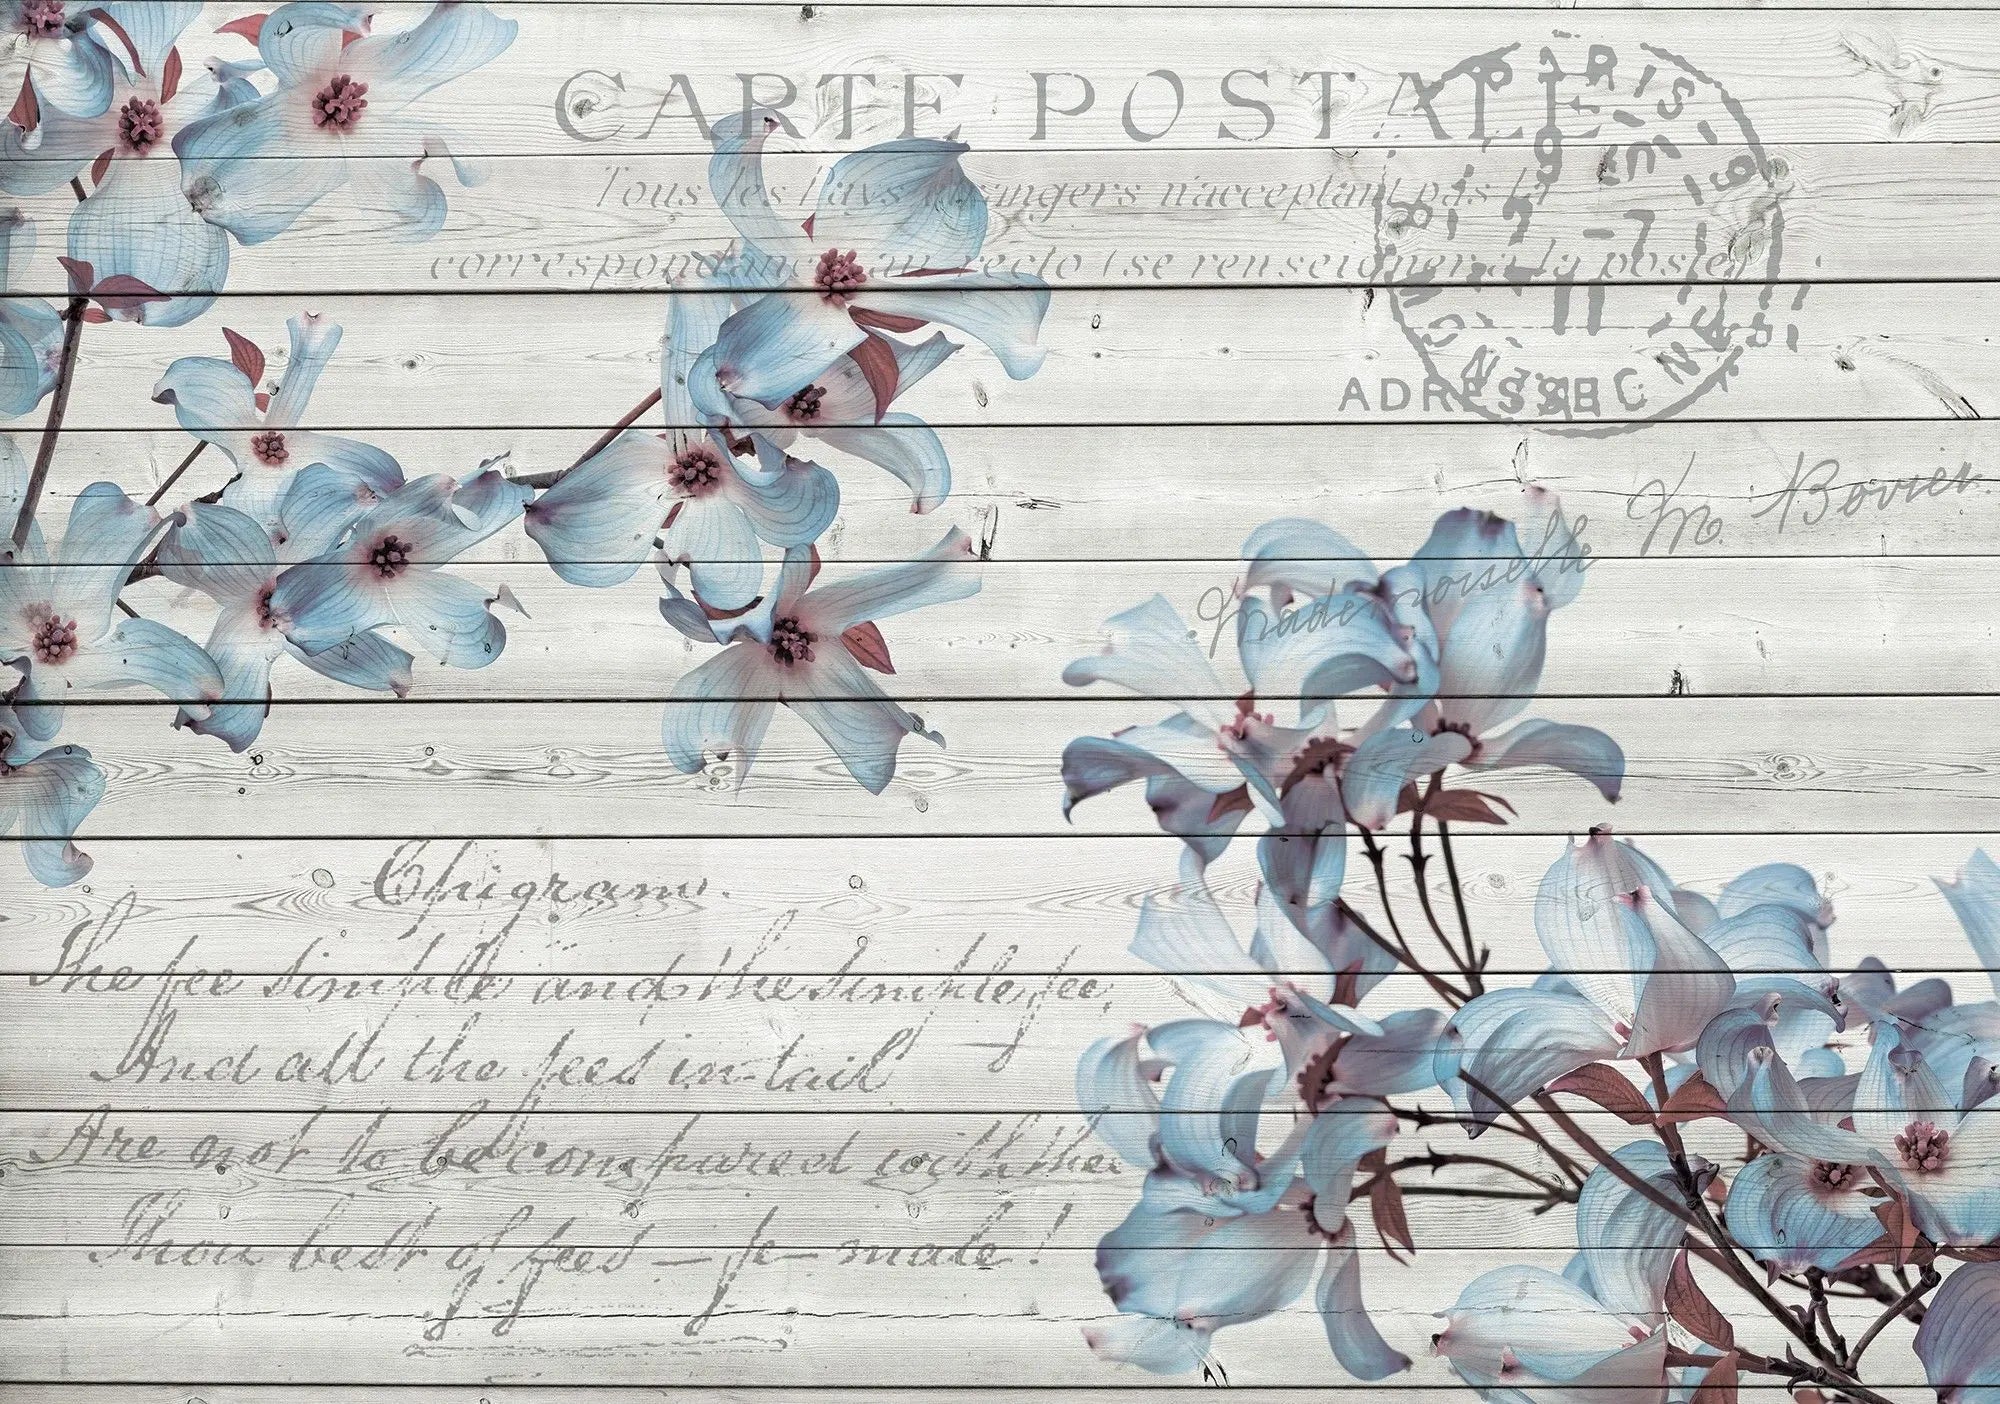 CARTE POSTALE
Tous les Pays étrangers n'acceptant pas la
correspondance au recto (se renseigner à la poste)
PARIS
7 -7
11
ADRESSE
Mademoiselle M. Bovier.
Epigram.
The fee simple and the simple fee,
And all the fees in-tail
Are not to be compared with thee
Thou best of fees — fe-male!